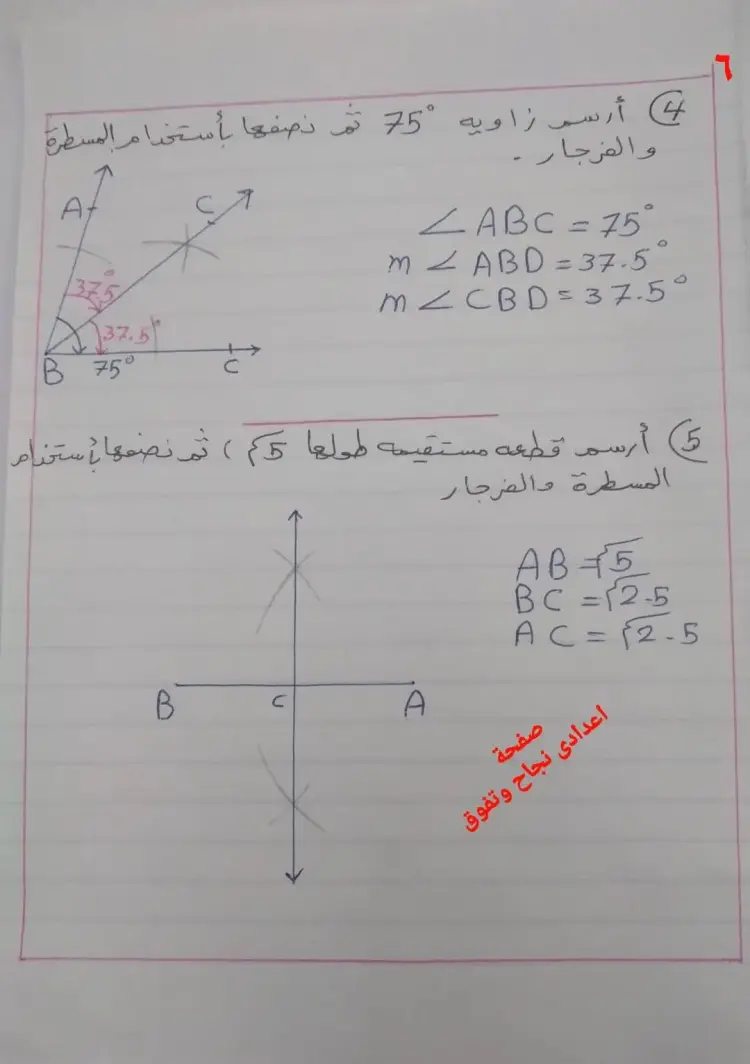 ٦
4) أرسم زاويه 75° ثم نصفها بأستخدام المسطرة
والفرجار .
∠ABC = 75°
m∠ABD = 37.5°
m∠CBD = 37.5°
A
C
37.5°
37.5°
B
75°
C
5) أرسم قطعه مستقيمه طولها 5م ) ثم نصفها بأستخدام
المسطرة والفرجار
AB = √5
BC = √2.5
AC = √2.5
B
C
A
صفحة
اعدادى نجاح وتفوق